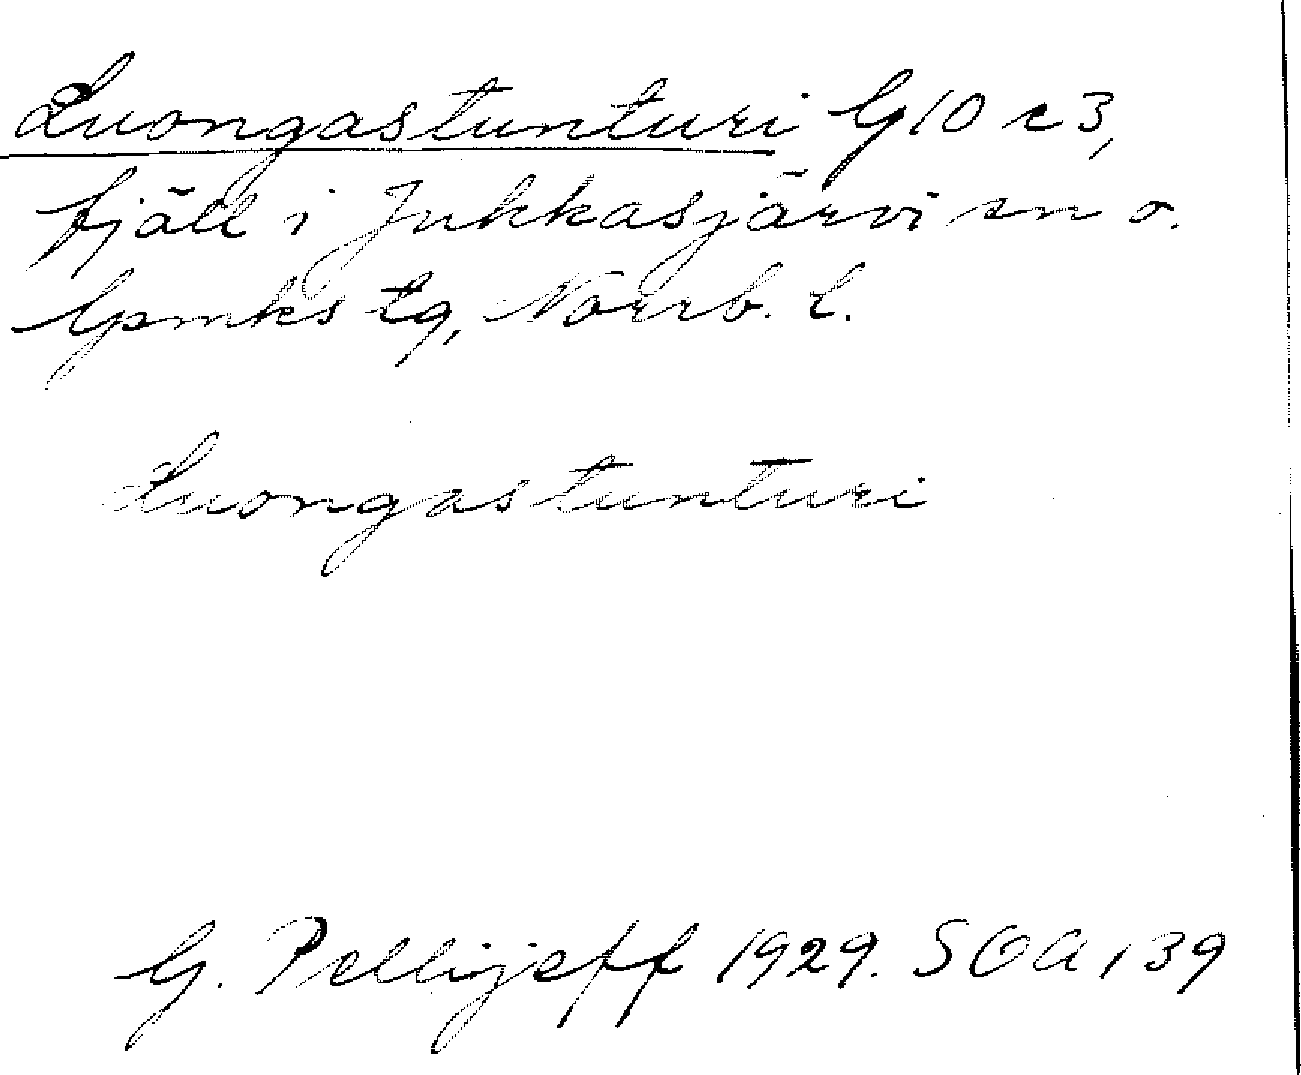 Luongastunturi G10 c3,
fjäll i Jukkasjärvi sn o.
Gpmks lg, Norrb. l.
Luongastunturi
G. Pellijeff 1929. SOA 139